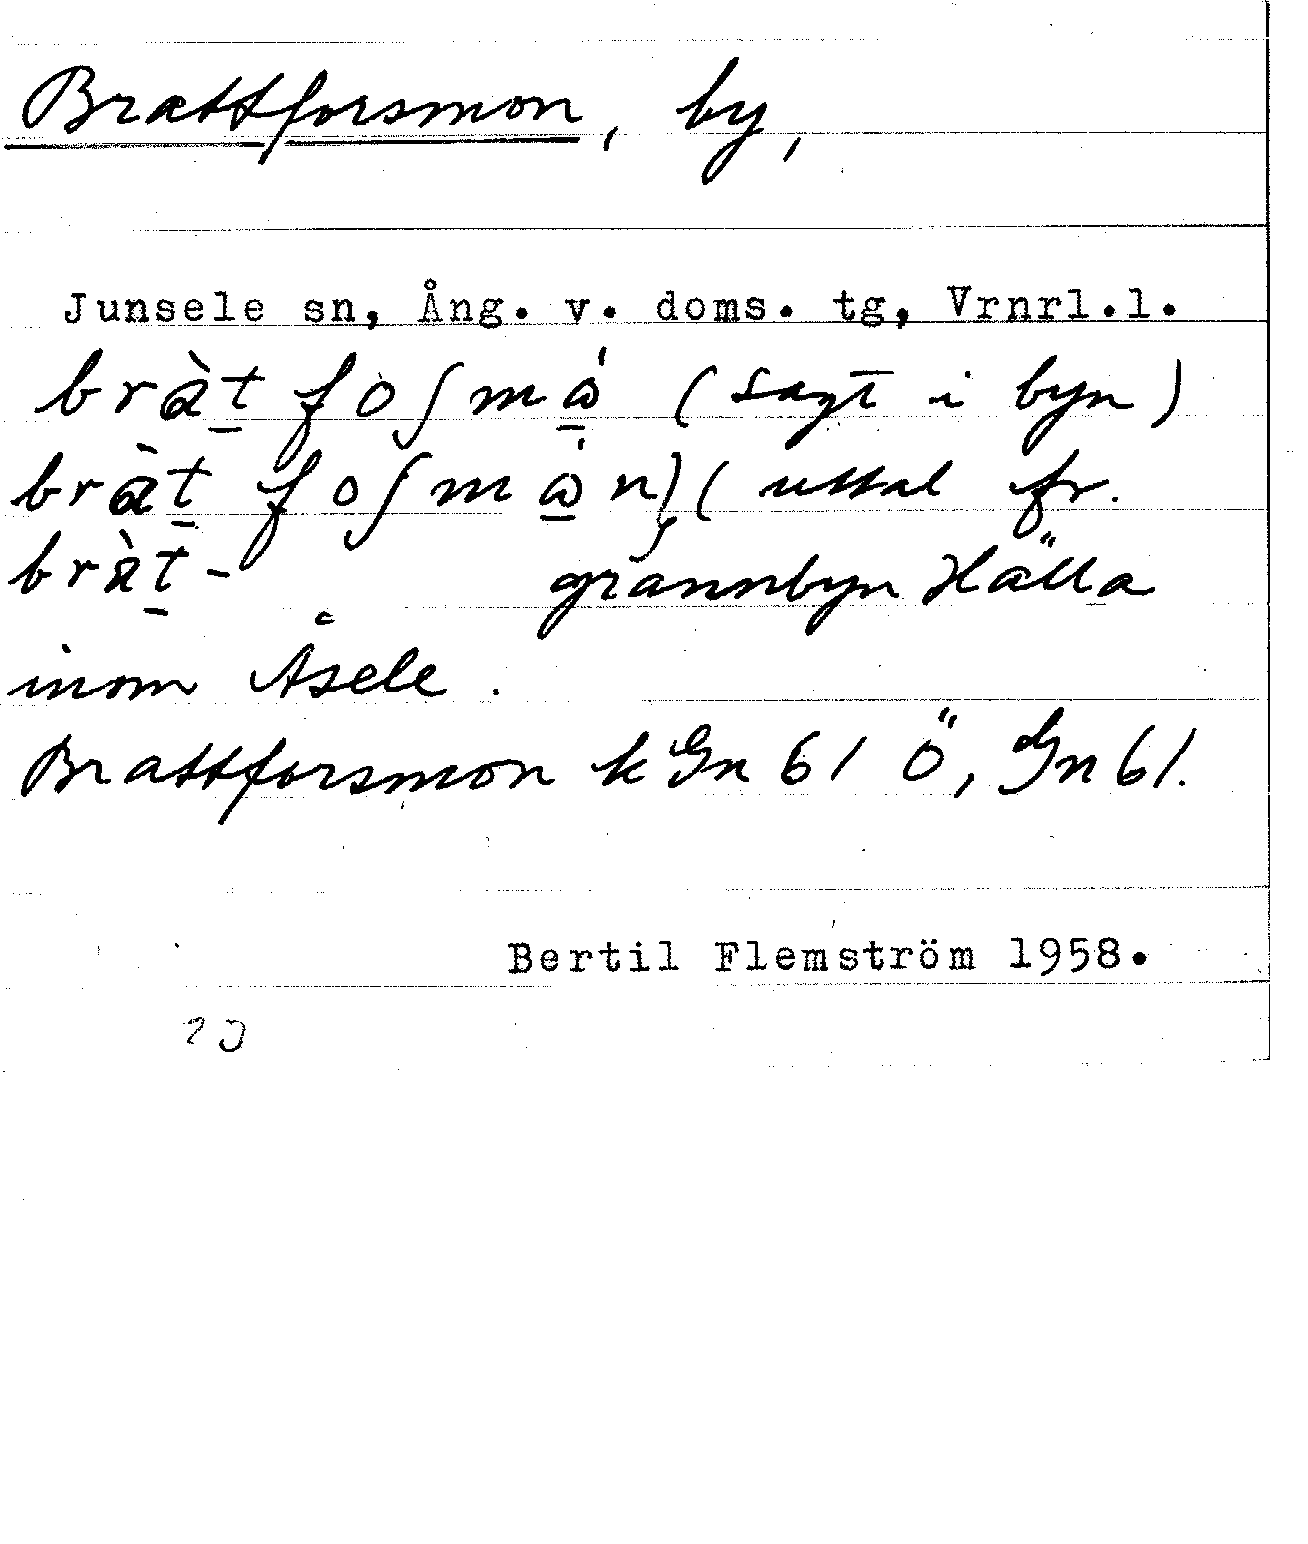 Brattforsmon, by,
Junsele sn, Ång. v. doms. tg, Vrnrl.l.
bràt̲ foʃmώ̲ (sagt i byn)
bràt̲ foʃmώ̲n) (uttal fr.
bràt̲- grannbyn Hälla
inom Åsele.
Brattforsmon k Gn 61 Ö, Gn 61.
Bertil Flemström 1958.